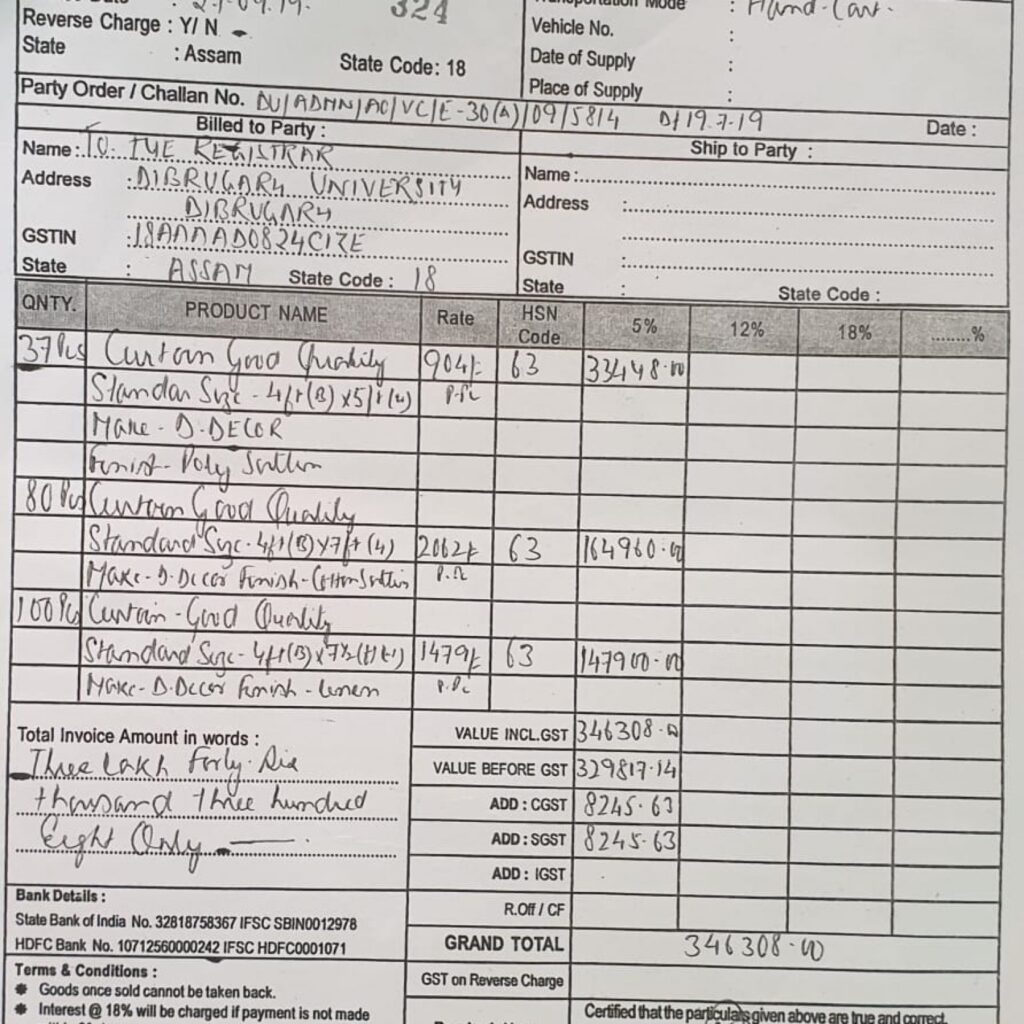 324
Hand-Cart.
Reverse Charge : Y/ N
Vehicle No. :
State : Assam State Code: 18
Date of Supply :
Place of Supply :
Party Order / Challan No. DU/ADMN/AC/VC/E-30(A)/09/5814 Dt 19.7.19 Date :
Billed to Party :
Ship to Party :
Name : To. THE REGISTRAR
Name :
Address : DIBRUGARH UNIVERSITY
Address :
DIBRUGARH
GSTIN : 18AAAAD0824C1ZE
GSTIN :
State : ASSAM State Code : 18
State : State Code :
QNTY. PRODUCT NAME Rate HSN Code 5% 12% 18% ........%
37 Pcs Curtain Good Quality 904/- 63 33448.00
Standar Size - 4ft(B) x 5ft(H) P.Pc
Make - D.DECOR
Finish - Poly Satin
80 Pcs Curtain Good Quality
Standard Size - 4ft(B) x 7ft (H) 2062/- 63 164960.00
Make - D.Decor Finish - Cotton Satin P.Pc
100 Pcs Curtain - Good Quality
Standard Size - 4ft(B) x 7½ 1479/- 63 147900.00
Make - D.Decor Finish - Linen P.Pc
VALUE INCL.GST 346308.00
Total Invoice Amount in words :
Three Lakh Forty Six
VALUE BEFORE GST 329817.14
thousand three hundred
ADD : CGST 8245.63
Eight Only
ADD : SGST 8245.63
ADD : IGST
Bank Details :
R.Off / CF
State Bank of India No. 32818758367 IFSC SBIN0012978
HDFC Bank No. 10712560000242 IFSC HDFC0001071
GRAND TOTAL 346308.00
Terms & Conditions :
GST on Reverse Charge
* Goods once sold cannot be taken back.
* Interest @ 18% will be charged if payment is not made
Certified that the particulars given above are true and correct.